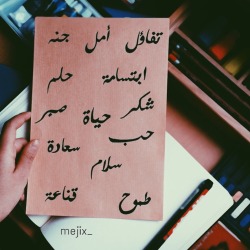 تفاؤل أمل جنه
ابتسامة حلم
شكر حياة صبر
حب سعادة
سلام
طموح قناعة
mejix_